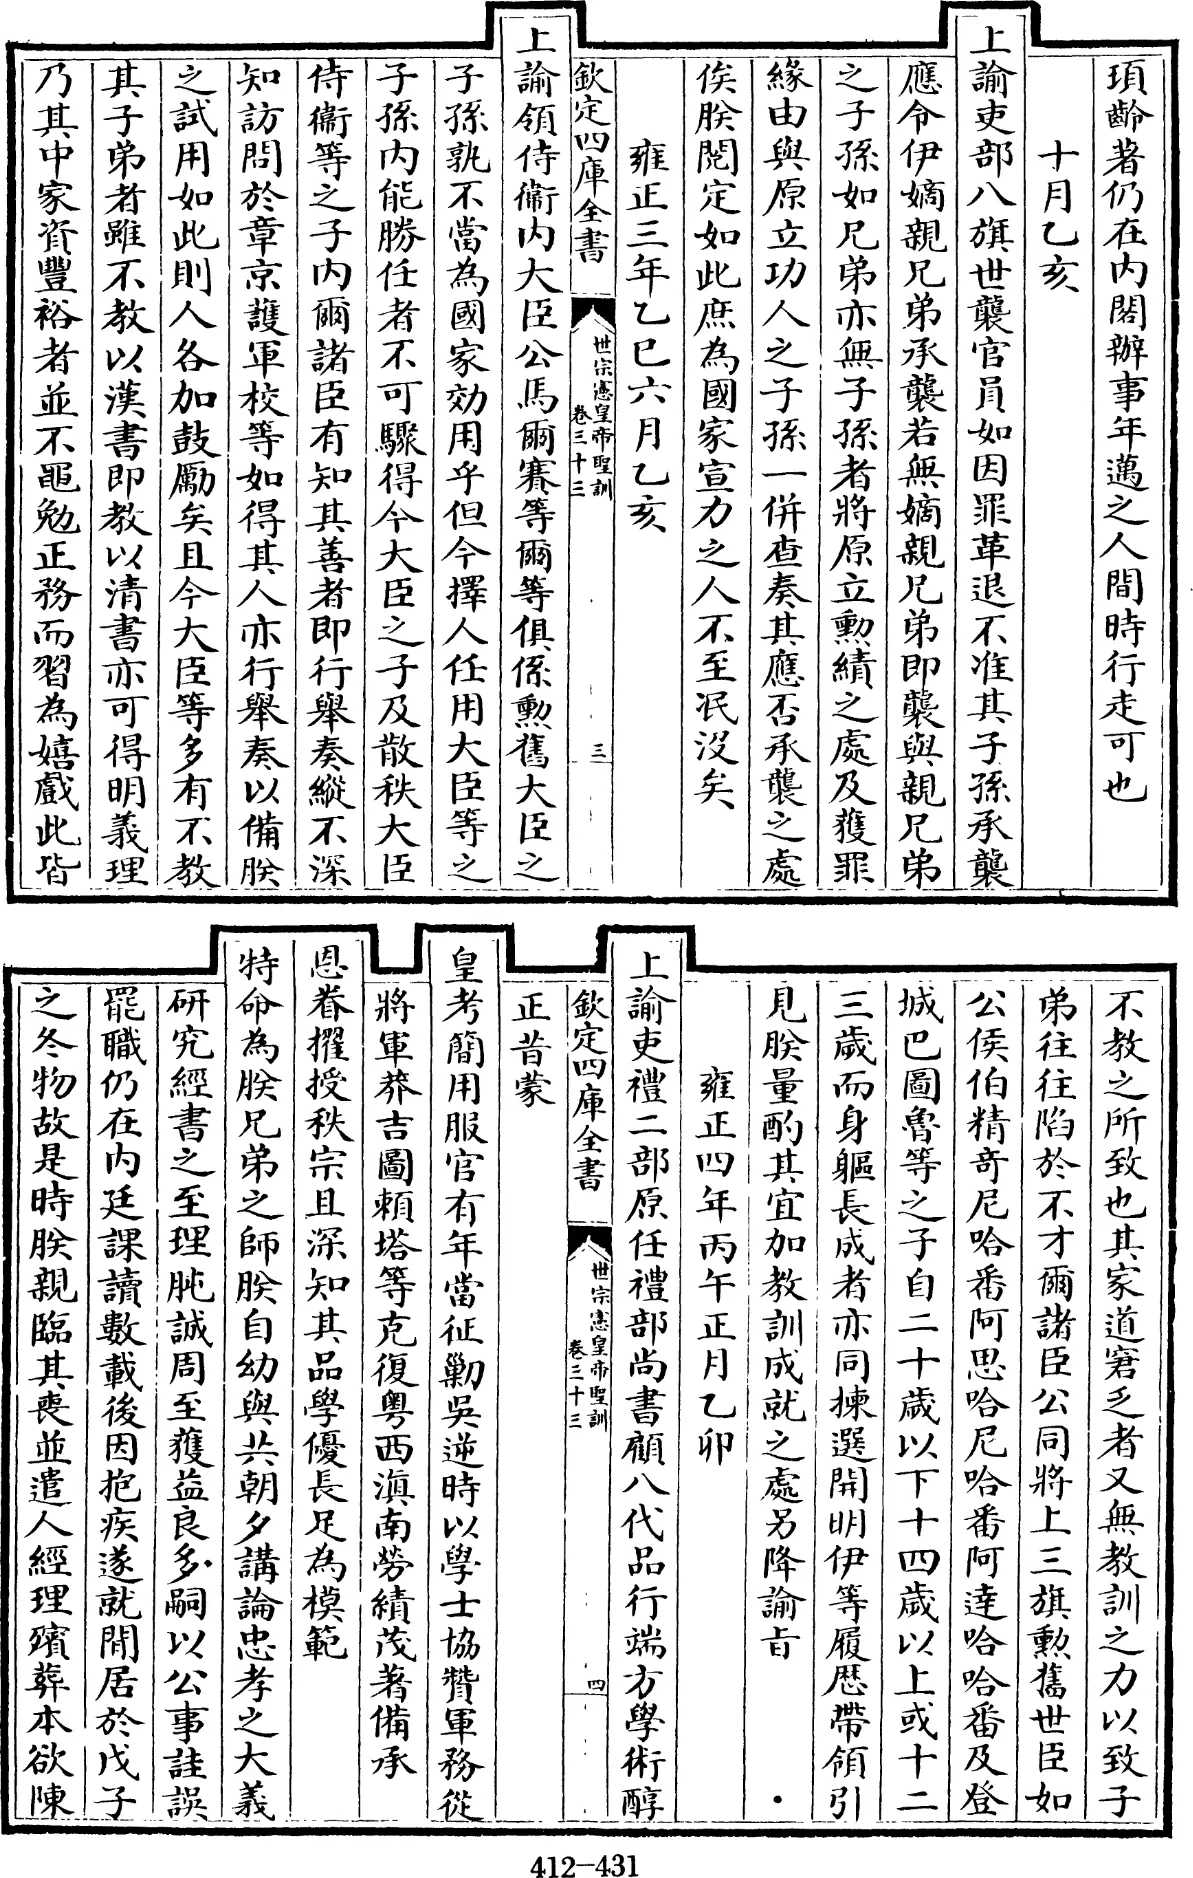 項齡著仍在内閣辦事年邁之人間時行走可也
十月乙亥
上諭吏部八旗世襲官員如因罪革退不准其子孫承襲
應令伊嫡親兄弟承襲若無嫡親兄弟即襲與親兄弟
之子孫如兄弟亦無子孫者將原立勲績之處及獲罪
緣由與原立功人之子孫一併查奏其應否承襲之處
俟朕閱定如此庶為國家宣力之人不至泯没矣
雍正三年乙巳六月乙亥
欽定四庫全書
世宗憲皇帝聖訓
卷三十三
三
上諭領侍衛内大臣公馬爾賽等爾等俱係勲舊大臣之
子孫孰不當為國家効用乎但今擇人任用大臣等之
子孫内能勝任者不可驟得今大臣之子及散秩大臣
侍衛等之子内爾諸臣有知其善者即行舉奏縱不深
知訪問於章京護軍校等如得其人亦行舉奏以備朕
之試用如此則人各加鼓勵矣且今大臣等多有不教
其子弟者雖不教以漢書即教以清書亦可得明義理
乃其中家資豐裕者並不黽勉正務而習為嬉戲此皆
不教之所致也其家道窘乏者又無教訓之力以致子
弟往往陷於不才爾諸臣公同將上三旗勲舊世臣如
公侯伯精奇尼哈番阿思哈尼哈番阿達哈哈番及登
城巴圖魯等之子自二十歲以下十四歲以上或十二
三歲而身軀長成者亦同揀選開明伊等履歷帶領引
見朕量酌其宜加教訓成就之處另降諭旨
雍正四年丙午正月乙卯
上諭吏禮二部原任禮部尚書顧八代品行端方學術醇
欽定四庫全書
世宗憲皇帝聖訓
卷三十三
四
正昔蒙
皇考簡用服官有年當征勦吳逆時以學士協贊軍務從
將軍莽吉圖賴塔等克復粤西滇南勞績茂著備承
恩眷擢授秩宗且深知其品學優長足為模範
特命為朕兄弟之師朕自幼與共朝夕講論忠孝之大義
研究經書之至理肫誠周至獲益良多嗣以公事詿誤
罷職仍在内廷課讀數載後因抱疾遂就閒居於戊子
之冬物故是時朕親臨其喪並遣人經理殯葬本欲陳
412-431